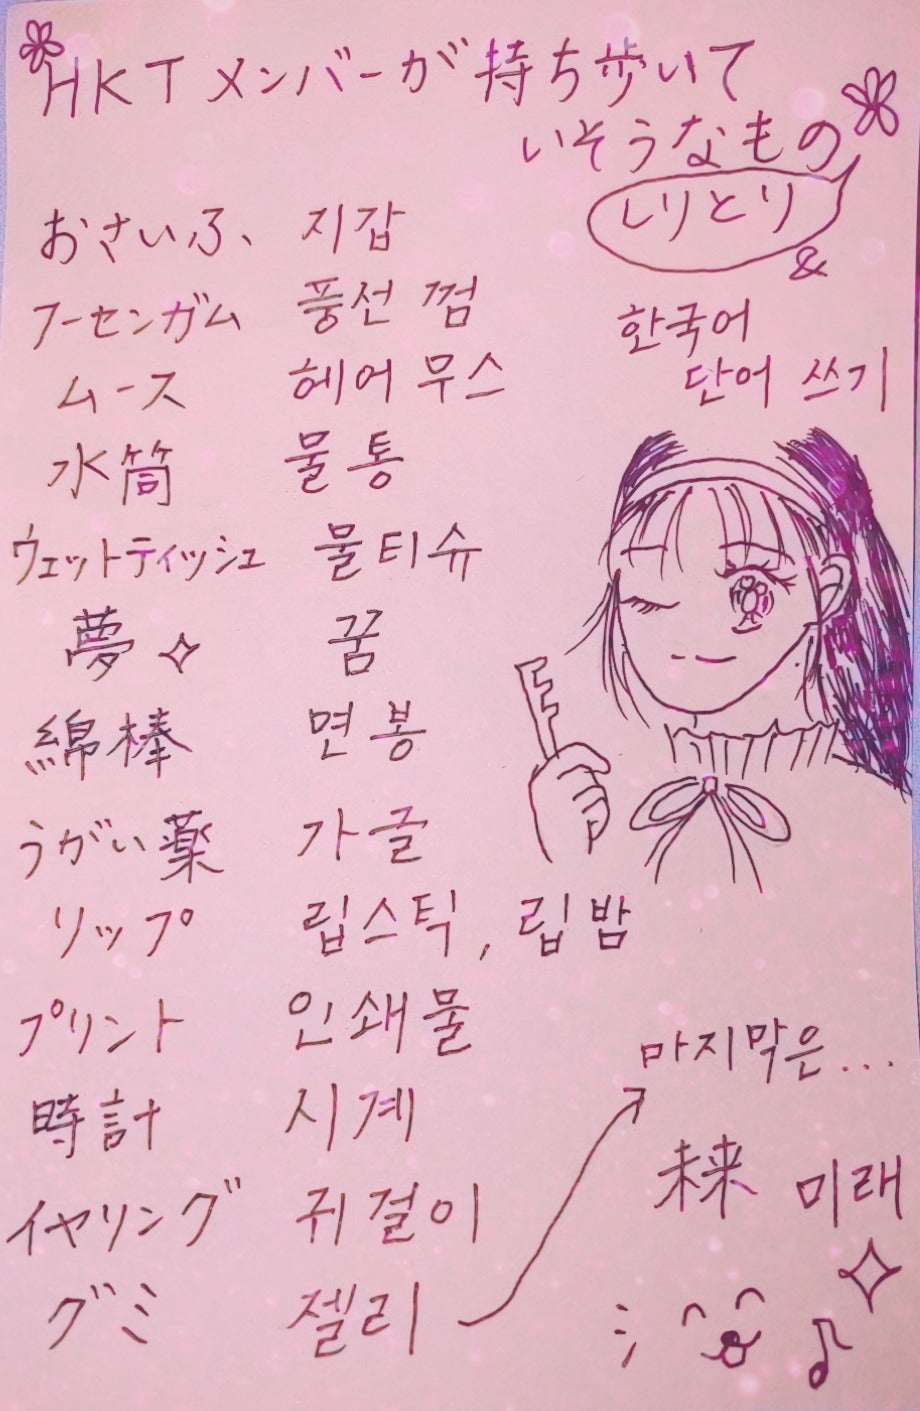 HKTメンバーが持ち歩いて
いそうなもの
しりとり
&
한국어
단어 쓰기
おさいふ、 지갑
フーセンガム 풍선 껌
ムース 헤어 무스
水筒 물통
ウェットティッシュ 물티슈
夢 꿈
綿棒 면봉
うがい薬 가글
リップ 립스틱, 립밤
プリント 인쇄물
時計 시계
イヤリング 귀걸이
グミ 젤리
마지막은...
未来 미래